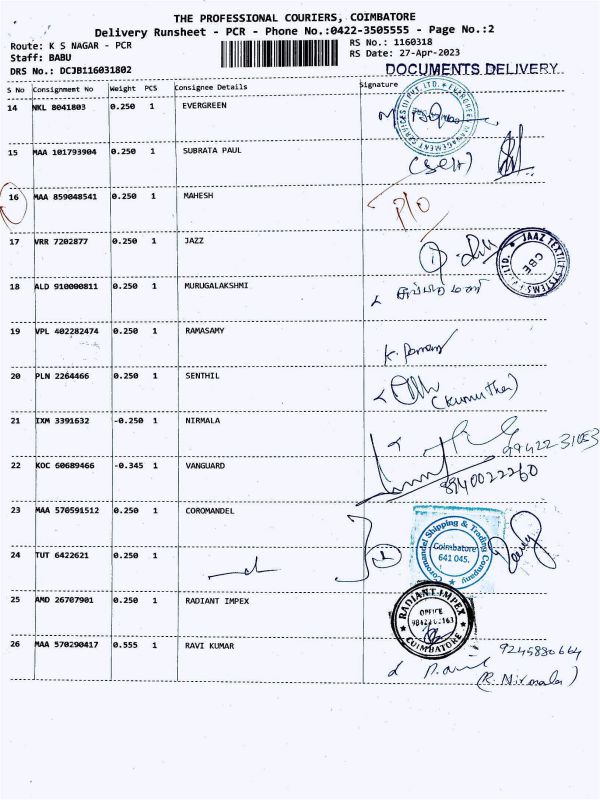 THE PROFESSIONAL COURIERS, COIMBATORE
Delivery Runsheet - PCR - Phone No.:0422-3505555 - Page No.:2
Route: K S NAGAR - PCR
RS No.: 1160318
Staff: BABU
RS Date: 27-Apr-2023
DRS No.: DCJB116031802
DOCUMENTS DELIVERY
S No Consignment No Weight PCS Consignee Details Signature
14 NKL 8041803 0.250 1 EVERGREEN
15 MAA 101793904 0.250 1 SUBRATA PAUL (Self)
16 MAA 859048541 0.250 1 MAHESH P/O
17 VRR 7202877 0.250 1 JAZZ
JAAZ TEXTILE SYSTEMS (P) LTD. CBE
18 ALD 910000811 0.250 1 MURUGALAKSHMI
19 VPL 402282474 0.250 1 RAMASAMY
20 PLN 2264466 0.250 1 SENTHIL (Kumutha)
21 IXM 3391632 -0.250 1 NIRMALA
22 KOC 60689466 -0.345 1 VANGUARD 8940022260
23 MAA 570591512 0.250 1 COROMANDEL
Coromandel Shipping & Trading Company
Coimbatore
641 045.
24 TUT 6422621 0.250 1
25 AMD 26707901 0.250 1 RADIANT IMPEX
RADIANT IMPEX
OFFICE
COIMBATORE
26 MAA 570290417 0.555 1 RAVI KUMAR 9245880664
(R. Nirmala)